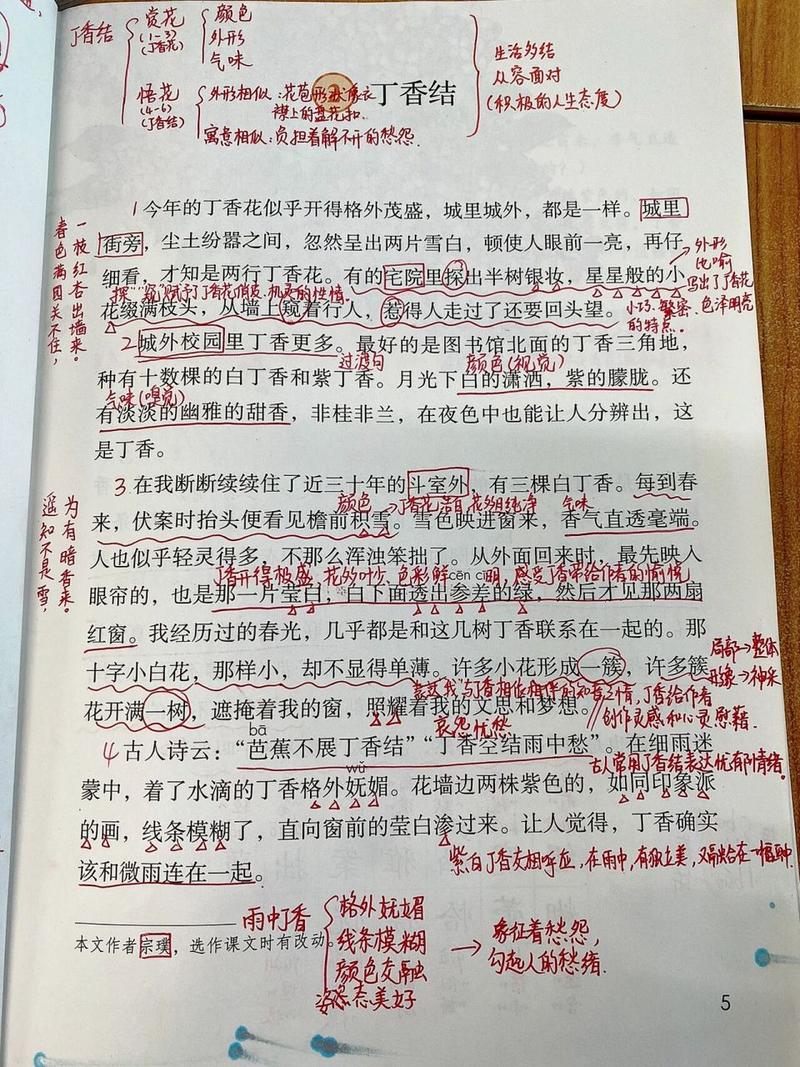 丁香结
赏花
(1-3)
(丁香花)
颜色
外形
气味
悟花
(4-6)
(丁香结)
外形相似：花苞形状像衣
襟上的盘花扣
寓意相似：负担着解不开的愁怨
生活多结
从容面对
(积极的人生态度)
丁香结
一枝红杏出墙来。
春色满园关不住，
1今年的丁香花似乎开得格外茂盛，城里城外，都是一样。城里
街旁，尘土纷嚣之间，忽然呈出两片雪白，顿使人眼前一亮，再仔
细看，才知是两行丁香花。有的宅院里探出半树银妆，星星般的小
外形
比喻
写出了丁香花
小巧、繁密、色泽明亮
的特点。
探""窥"赋予了丁香花俏皮、机灵的性情。
花缀满枝头，从墙上窥着行人，惹得人走过了还要回头望。
2城外校园里丁香更多。最好的是图书馆北面的丁香三角地，
过渡句
颜色(视觉)
种有十数棵的白丁香和紫丁香。月光下白的潇洒，紫的朦胧。还
气味(嗅觉)
有淡淡的幽雅的甜香，非桂非兰，在夜色中也能让人分辨出，这
是丁香。
为有暗香来。
遥知不是雪，
3在我断断续续住了近三十年的斗室外，有三棵白丁香。每到春
颜色→丁香花洁白
气味
来，伏案时抬头便看见檐前积雪。雪色映进窗来，香气直透毫端。
人也似乎轻灵得多，不那么浑浊笨拙了。从外面回来时，最先映入
丁香开得极盛，花多叶少，色彩鲜明，感受丁香带给作者的愉悦
cēn cī
眼帘的，也是那一片莹白，白下面透出参差的绿，然后才见那两扇
红窗。我经历过的春光，几乎都是和这几树丁香联系在一起的。那
十字小白花，那样小，却不显得单薄。许多小花形成一簇，许多簇
局部→整体
形象→神采
表达"我"与丁香相依相伴的和喜之情，丁香给作者
创作灵感和心灵慰藉。
花开满一树，遮掩着我的窗，照耀着我的文思和梦想。
哀怨忧愁
bā
4古人诗云：“芭蕉不展丁香结”“丁香空结雨中愁”。在细雨迷
古人常用丁香结表达忧郁情绪。
wǔ
蒙中，着了水滴的丁香格外妩媚。花墙边两株紫色的，如同印象派
的画，线条模糊了，直向窗前的莹白渗过来。让人觉得，丁香确实
该和微雨连在一起。
紫白丁香交相呼应，在雨中，有独立美，又融合在一幅画中
本文作者宗璞，选作课文时有改动。
雨中丁香
格外妩媚
线条模糊
颜色交融
姿态美好
象征着愁怨，
勾起人的愁绪.
5